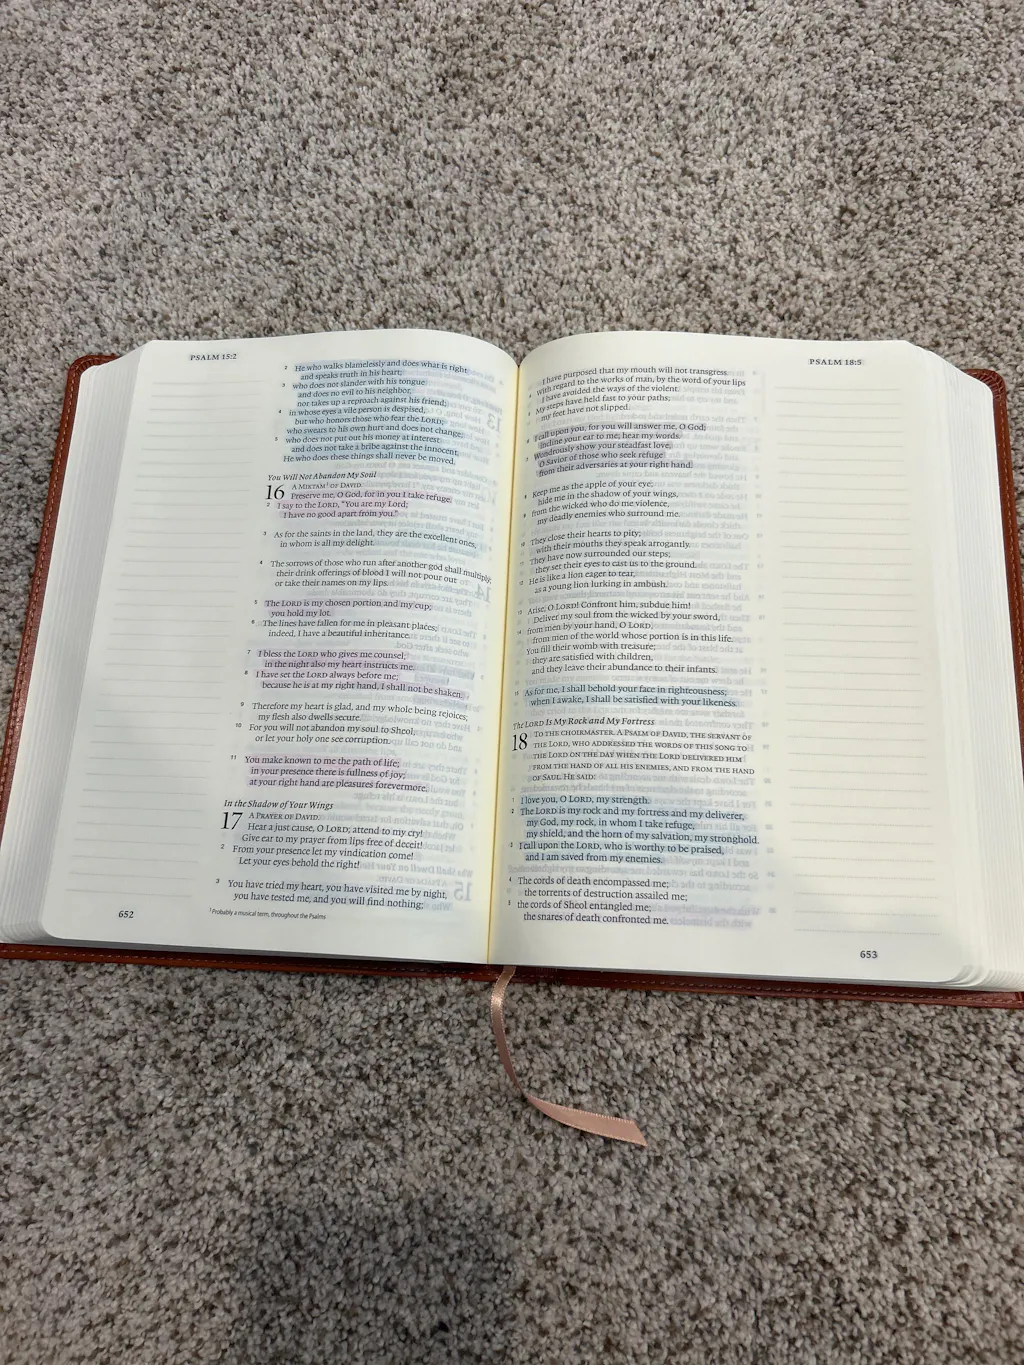 PSALM 15:2
2 He who walks blamelessly and does what is right
and speaks truth in his heart;
3 who does not slander with his tongue
and does no evil to his neighbor,
nor takes up a reproach against his friend;
4 in whose eyes a vile person is despised,
but who honors those who fear the LORD;
who swears to his own hurt and does not change;
5 who does not put out his money at interest
and does not take a bribe against the innocent.
He who does these things shall never be moved.
You Will Not Abandon My Soul
16 A MIKTAM¹ OF DAVID.
Preserve me, O God, for in you I take refuge.
2 I say to the LORD, “You are my Lord;
I have no good apart from you.”
3 As for the saints in the land, they are the excellent ones,
in whom is all my delight.
4 The sorrows of those who run after another god shall multiply;
their drink offerings of blood I will not pour out
or take their names on my lips.
5 The LORD is my chosen portion and my cup;
you hold my lot.
6 The lines have fallen for me in pleasant places;
indeed, I have a beautiful inheritance.
7 I bless the LORD who gives me counsel;
in the night also my heart instructs me.
8 I have set the LORD always before me;
because he is at my right hand, I shall not be shaken.
9 Therefore my heart is glad, and my whole being rejoices;
my flesh also dwells secure.
10 For you will not abandon my soul to Sheol,
or let your holy one see corruption.
11 You make known to me the path of life;
in your presence there is fullness of joy;
at your right hand are pleasures forevermore.
In the Shadow of Your Wings
17 A PRAYER OF DAVID.
Hear a just cause, O LORD; attend to my cry!
Give ear to my prayer from lips free of deceit!
2 From your presence let my vindication come!
Let your eyes behold the right!
3 You have tried my heart, you have visited me by night,
you have tested me, and you will find nothing;
652
¹ Probably a musical term, throughout the Psalms
PSALM 18:5
I have purposed that my mouth will not transgress.
4 With regard to the works of man, by the word of your lips
I have avoided the ways of the violent.
5 My steps have held fast to your paths;
my feet have not slipped.
6 I call upon you, for you will answer me, O God;
incline your ear to me; hear my words.
7 Wondrously show your steadfast love,
O Savior of those who seek refuge
from their adversaries at your right hand.
8 Keep me as the apple of your eye;
hide me in the shadow of your wings,
9 from the wicked who do me violence,
my deadly enemies who surround me.
10 They close their hearts to pity;
with their mouths they speak arrogantly.
11 They have now surrounded our steps;
they set their eyes to cast us to the ground.
12 He is like a lion eager to tear,
as a young lion lurking in ambush.
13 Arise, O LORD! Confront him, subdue him!
Deliver my soul from the wicked by your sword,
14 from men by your hand, O LORD,
from men of the world whose portion is in this life.
You fill their womb with treasure;
they are satisfied with children,
and they leave their abundance to their infants.
15 As for me, I shall behold your face in righteousness;
when I awake, I shall be satisfied with your likeness.
The LORD Is My Rock and My Fortress
18 TO THE CHOIRMASTER. A PSALM OF DAVID, THE SERVANT OF
THE LORD, WHO ADDRESSED THE WORDS OF THIS SONG TO
THE LORD ON THE DAY WHEN THE LORD DELIVERED HIM
FROM THE HAND OF ALL HIS ENEMIES, AND FROM THE HAND
OF SAUL. HE SAID:
1 I love you, O LORD, my strength.
2 The LORD is my rock and my fortress and my deliverer,
my God, my rock, in whom I take refuge,
my shield, and the horn of my salvation, my stronghold.
3 I call upon the LORD, who is worthy to be praised,
and I am saved from my enemies.
4 The cords of death encompassed me;
the torrents of destruction assailed me;
5 the cords of Sheol entangled me;
the snares of death confronted me.
653